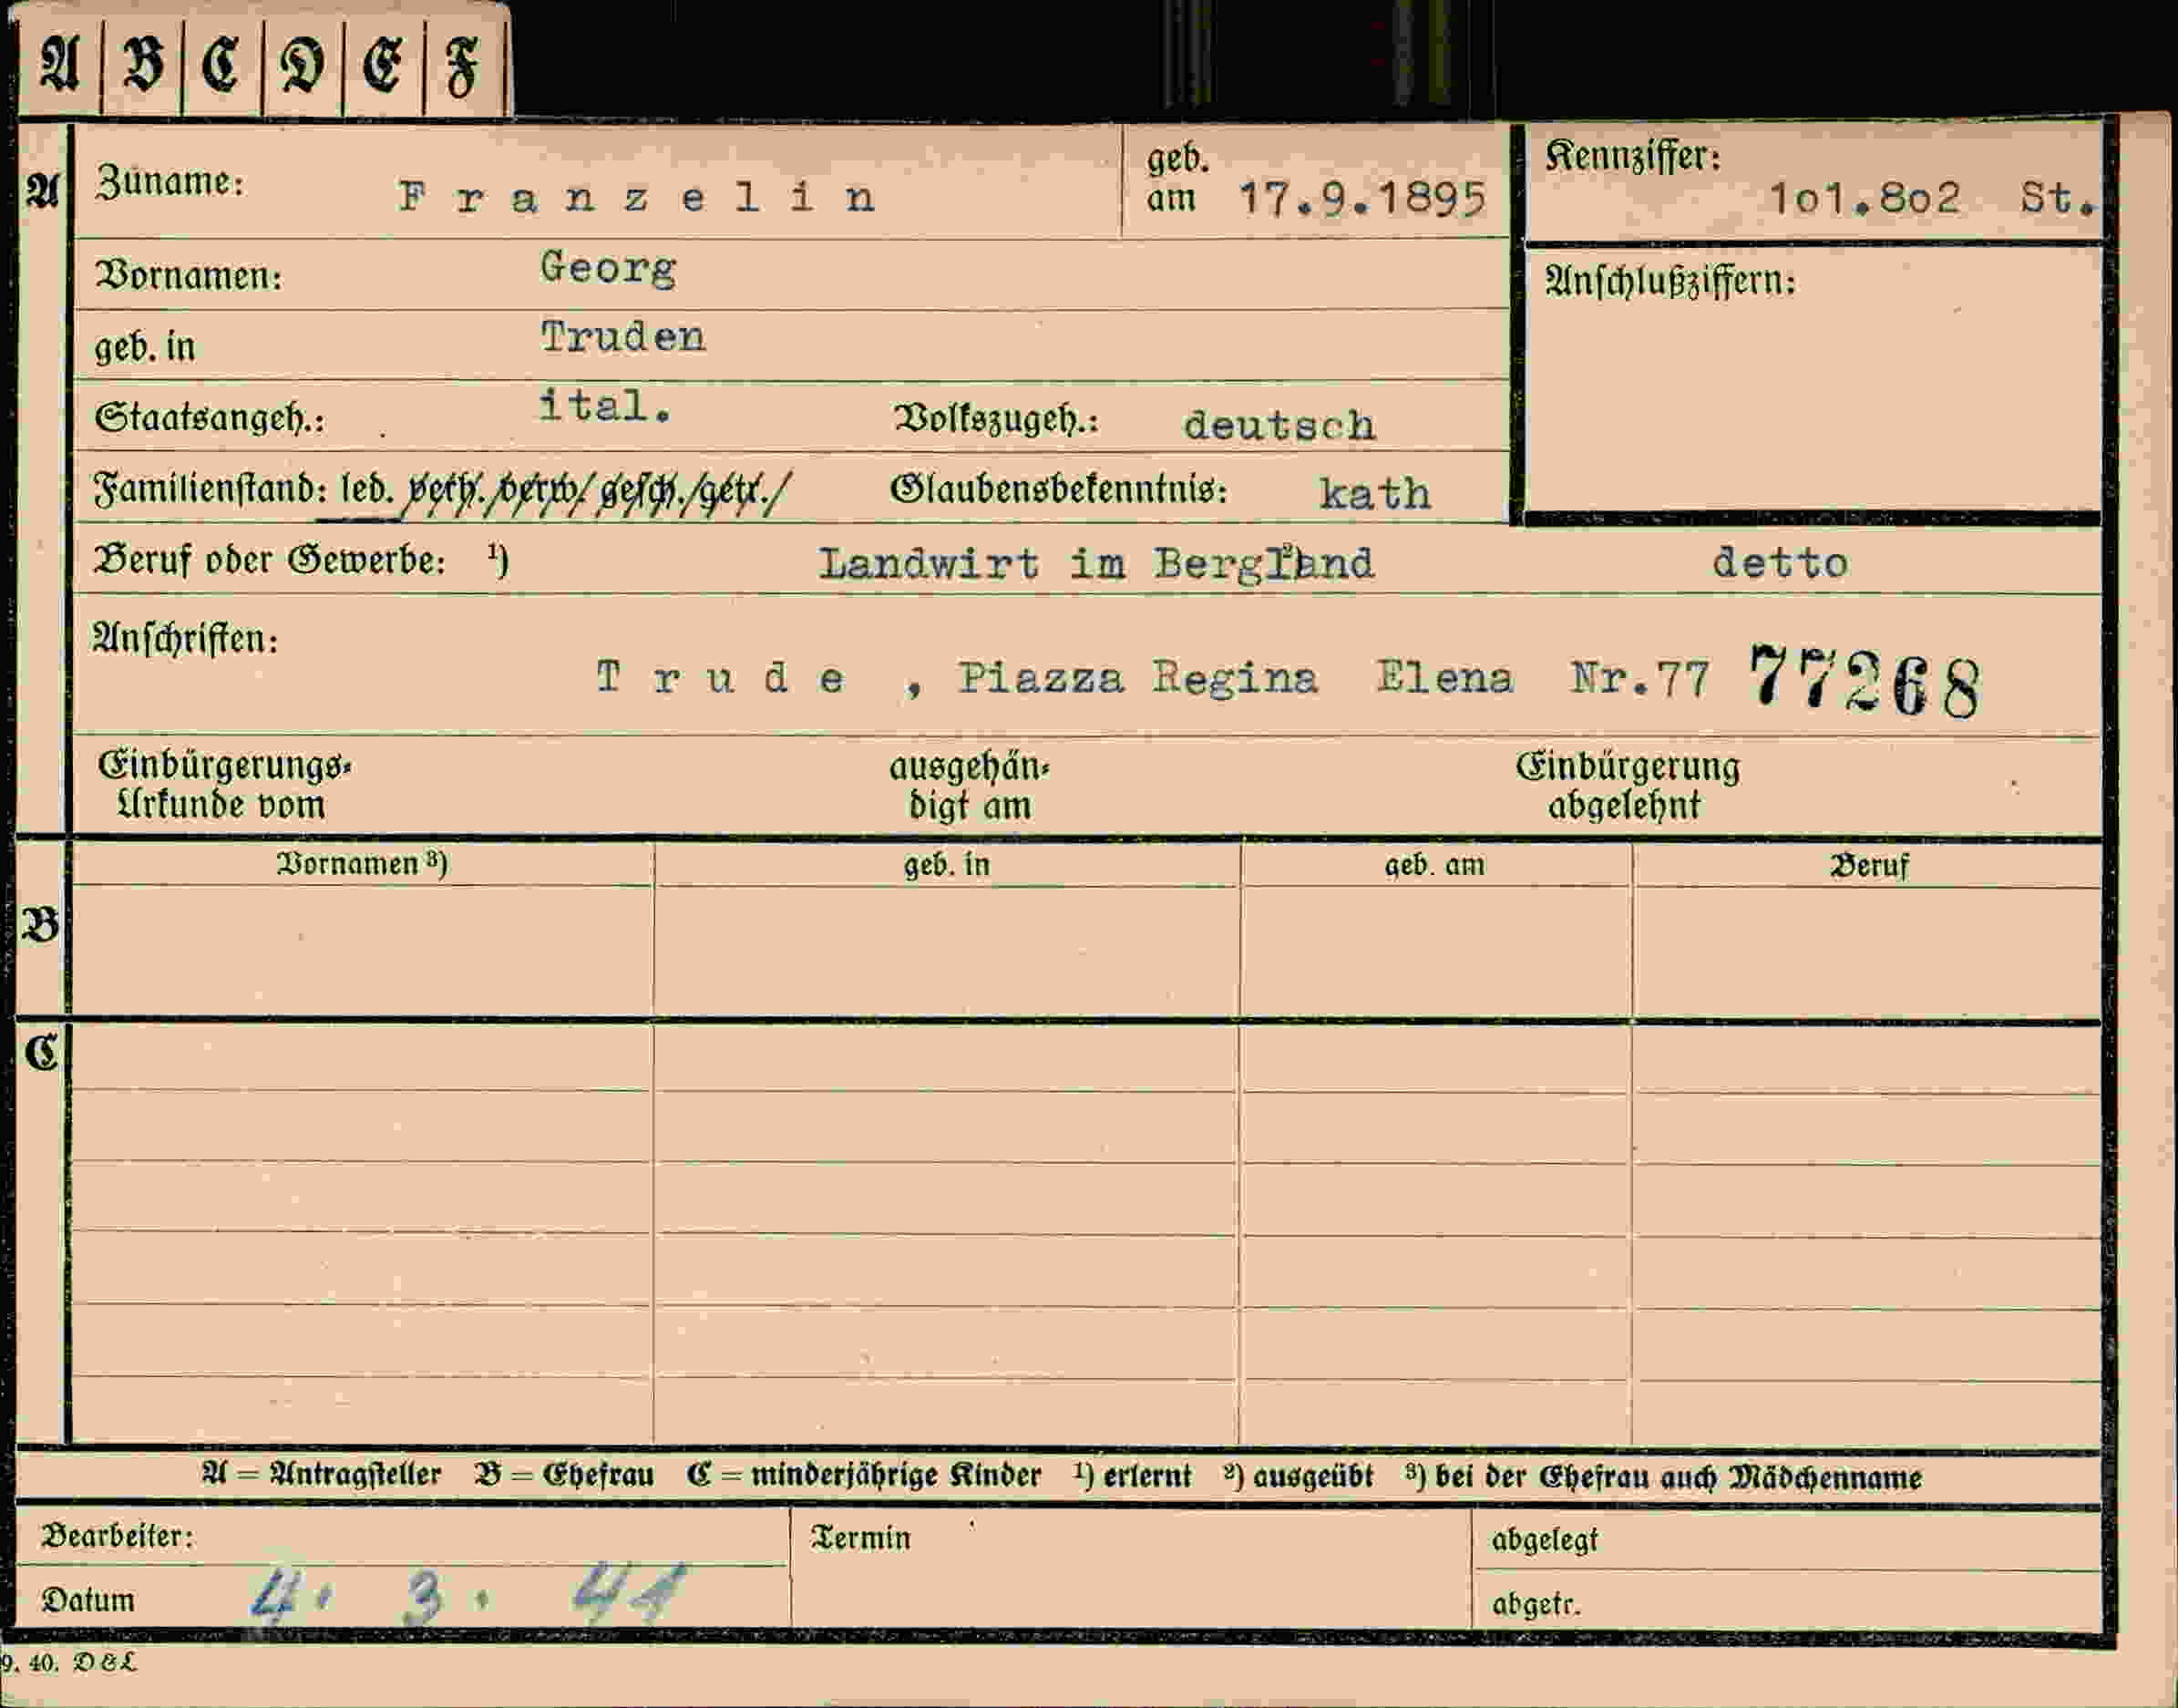 A B C D E F
A Zuname: Franzelin geb. am 17.9.1895 Kennziffer: 1o1.8o2 St.
Vornamen: Georg Anschlußziffern:
geb. in Truden
Staatsangeh.: ital. Volkszugeh.: deutsch
Familienstand: led. verh. verw. gesch. getr. Glaubensbekenntnis: kath
Beruf oder Gewerbe: ¹) Landwirt im Bergland ²) detto
Anschriften:
Trude , Piazza Regina Elena Nr.77 77268
Einbürgerungs-Urkunde vom ausgehändigt am Einbürgerung abgelehnt
Vornamen ³) geb. in geb. am Beruf
B
C
A = Antragsteller B = Ehefrau C = minderjährige Kinder ¹) erlernt ²) ausgeübt ³) bei der Ehefrau auch Mädchenname
Bearbeiter: Termin abgelegt
Datum 4. 3. 41 abgetr.
9. 40. D & L